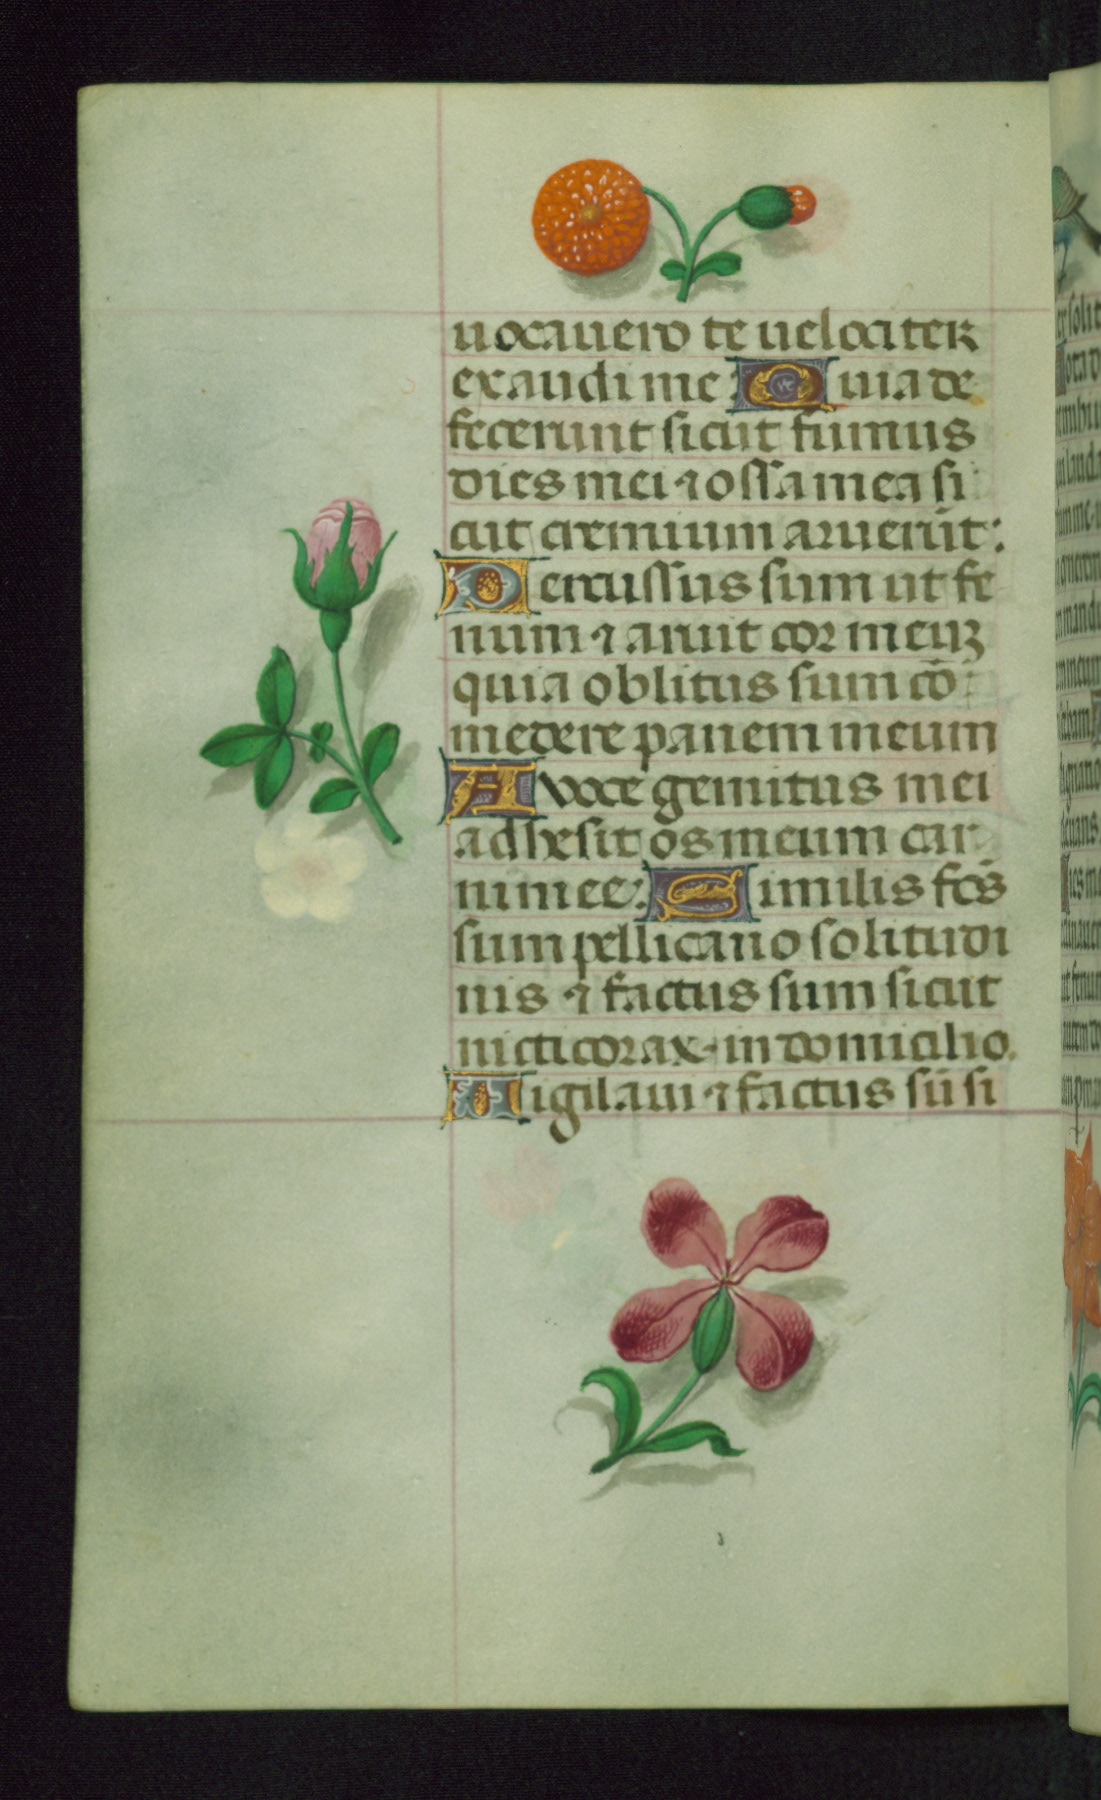 uocauero te uelociter
exaudi me Quia de
fecerunt sicut fumus
dies mei ⁊ ossa mea si
cut cremium aruerūt:
Percussus sum ut fe
num ⁊ aruit cor meuꝫ
quia oblitus sum cō
medere panem meum
A voce gemitus mei
adhesit os meum car
ni mee: Similis fc̄s
sum pellicano solitudi
nis ⁊ factus sum sicut
nicticorax in domicilio.
Vigilaui ⁊ factus sū si